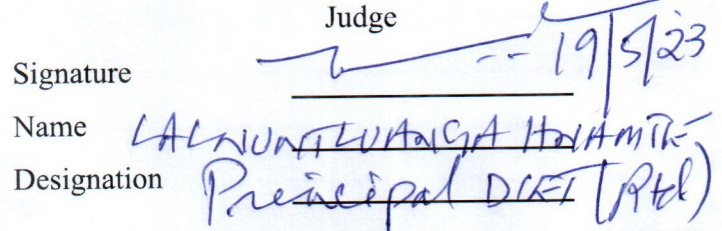 Judge
Signature 19/5/23
Name LALNUNTLUANGA HNAMTE
Designation Principal DIET (Rtd)